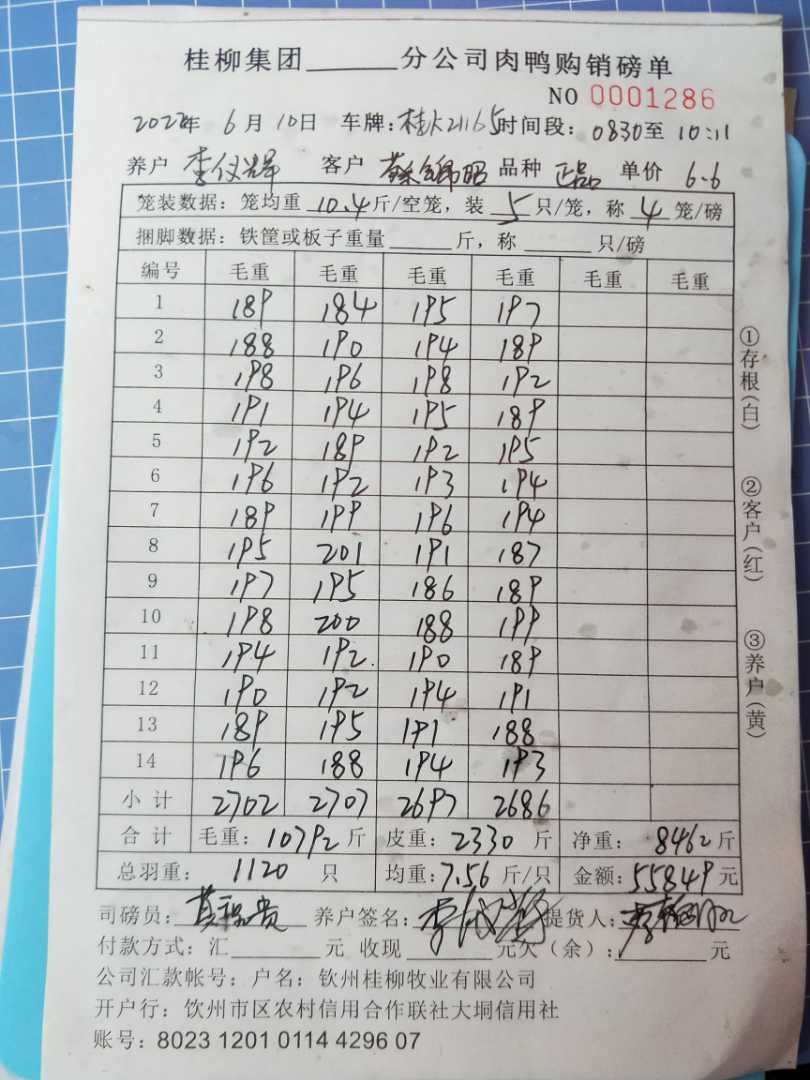 桂柳集团______分公司肉鸭购销磅单
NO 0001286
2022年 6月10日 车牌：桂K21165 时间段：0830至10:11
养户 李仪辉 客户 品种 正品 单价 6.6
笼装数据：笼均重 10.4 斤/空笼，装 5 只/笼，称 4 笼/磅
捆脚数据：铁筐或板子重量______斤，称______只/磅
编号 毛重 毛重 毛重 毛重 毛重 毛重
1 189 184 195 197
2 188 190 194 189
3 198 196 198 192
4 191 194 195 189
5 192 189 192 195
6 196 192 193 194
7 189 199 196 194
8 195 201 191 187
9 197 195 186 189
10 198 200 188 199
11 194 192 190 189
12 190 192 194 191
13 189 195 191 188
14 196 188 194 193
小计 2702 2707 2697 2686
合计 毛重：10792斤 皮重：2330斤 净重：8462斤
总羽重：1120只 均重：7.56斤/只 金额：55849元
司磅员： 养户签名：李仪辉 提货人：
付款方式：汇______元 收现______元欠（余）：______元
公司汇款帐号：户名：钦州桂柳牧业有限公司
开户行：饮州市区农村信用合作联社大垌信用社
账号：8023 1201 0114 4296 07
①存根（白）
②客户（红）
③养户（黄）